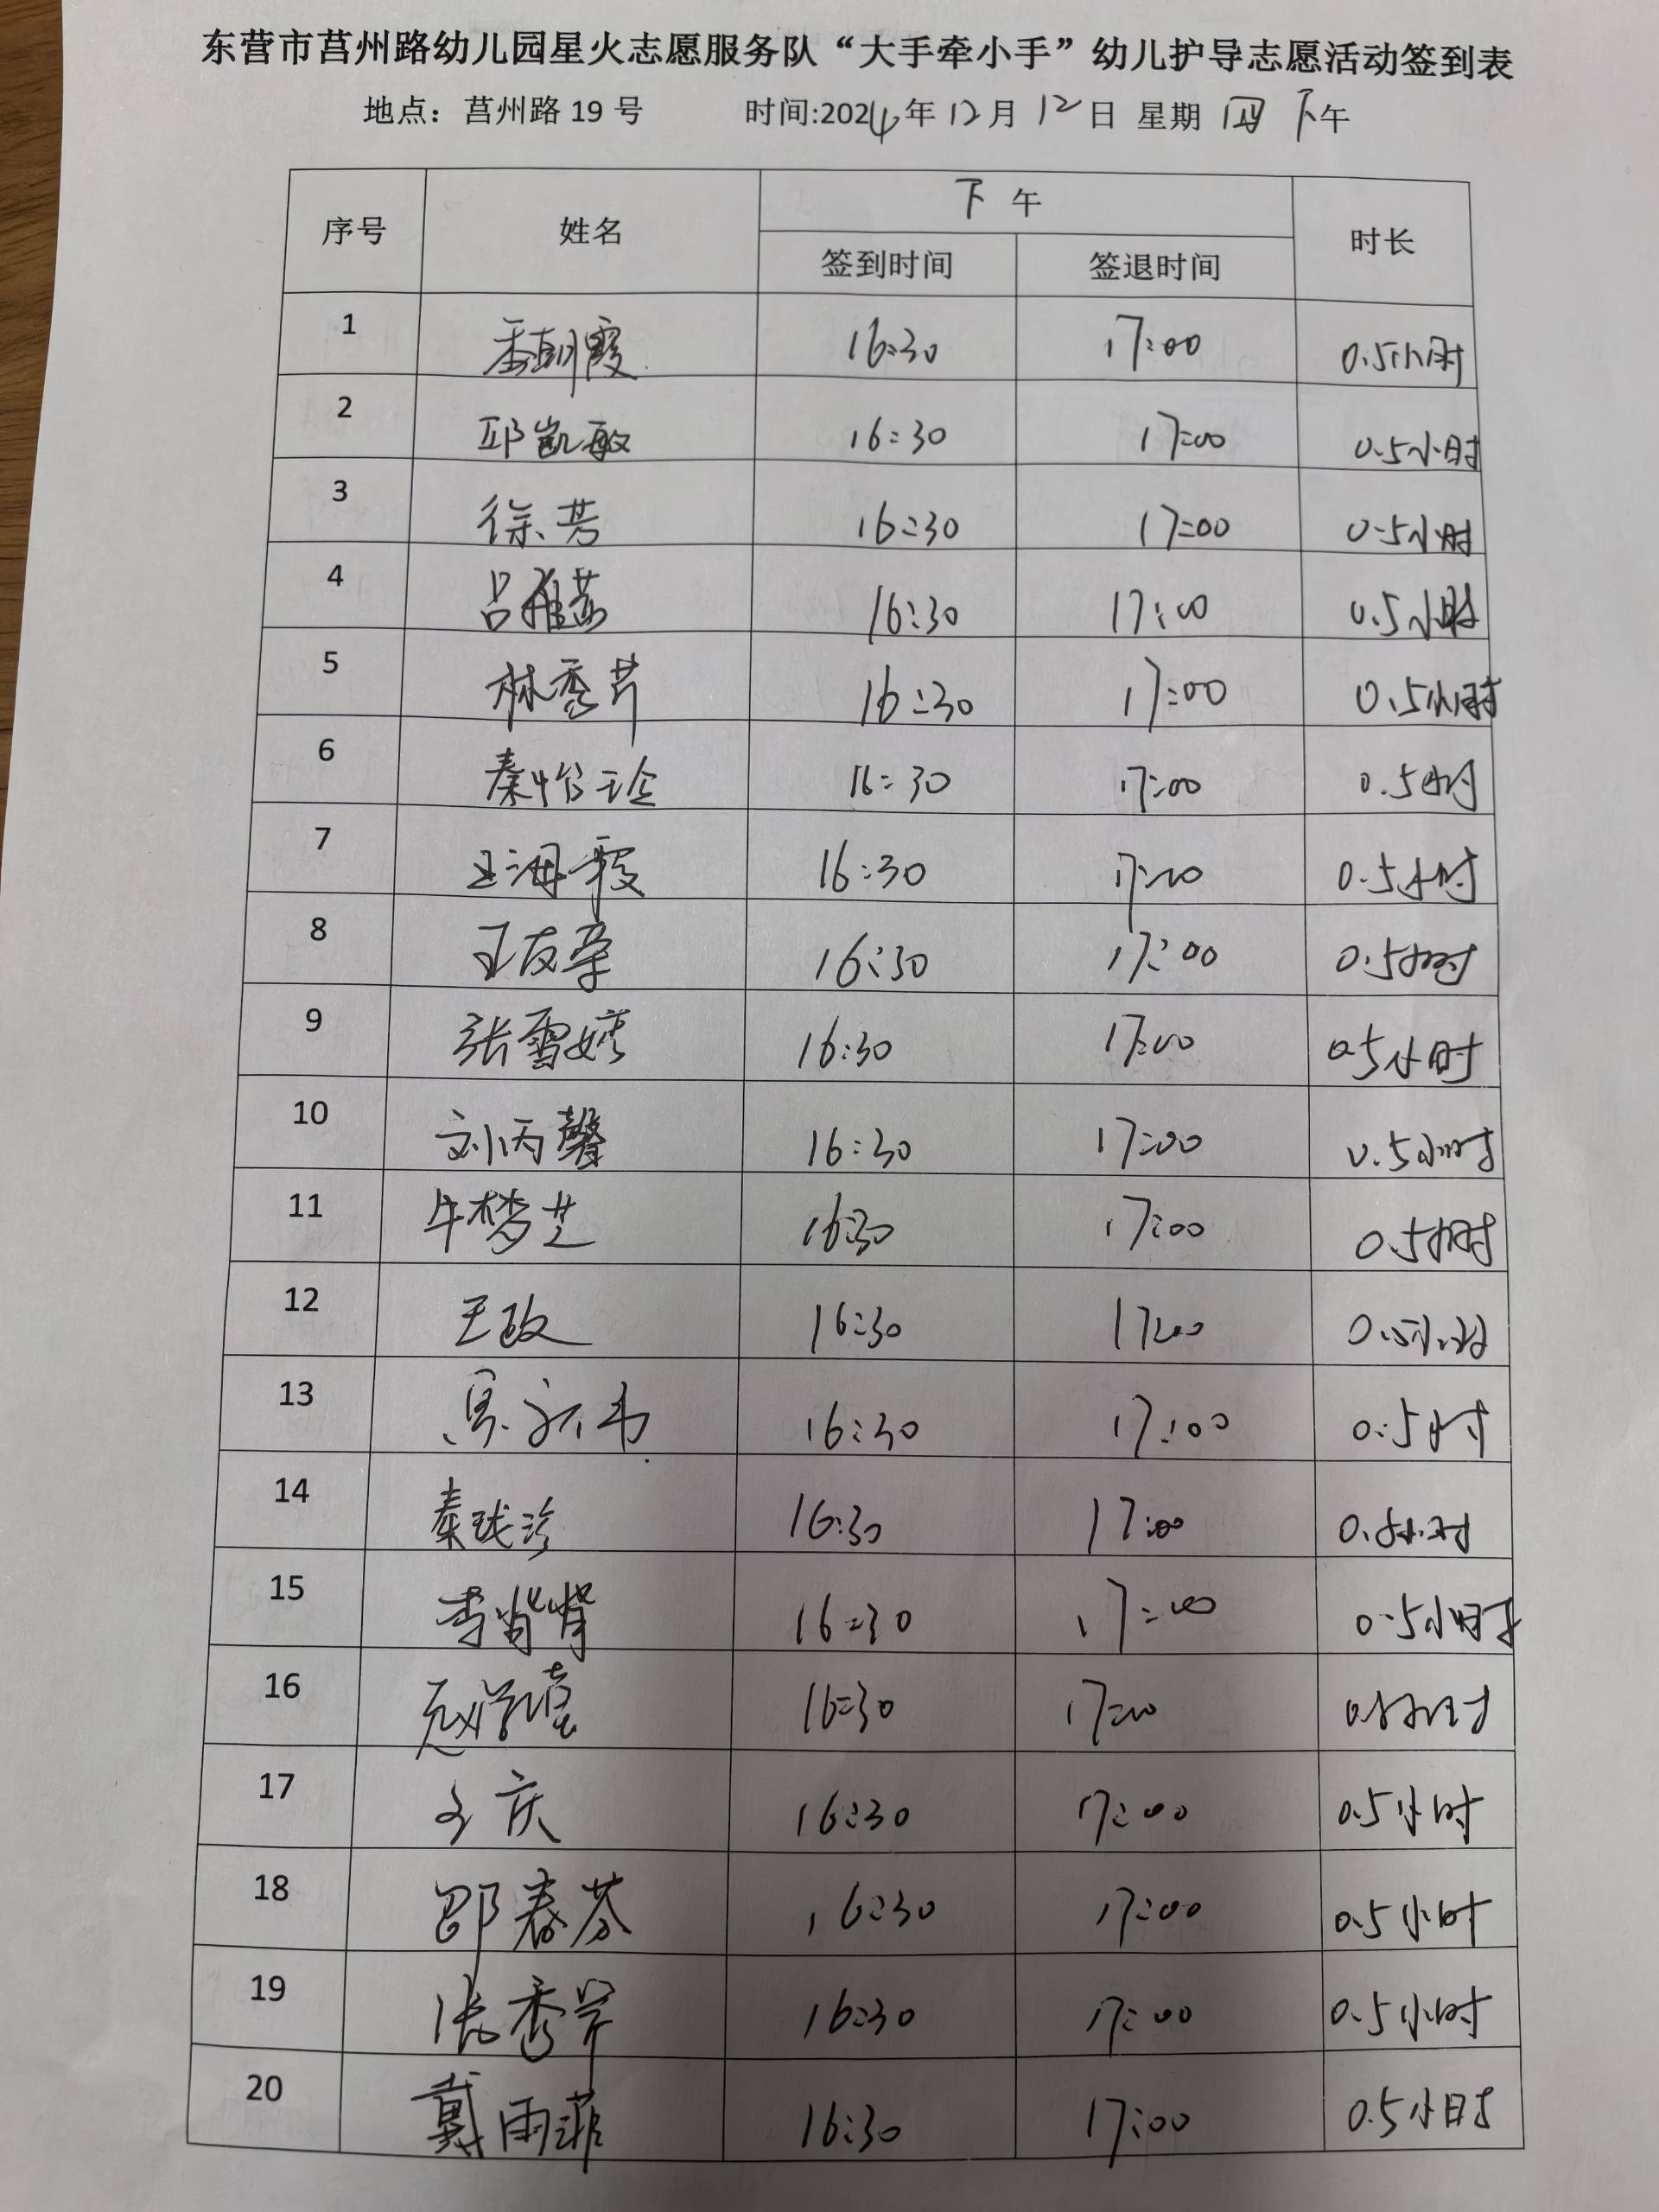 东营市莒州路幼儿园星火志愿服务队“大手牵小手”幼儿护导志愿活动签到表
地点：莒州路 19 号 时间:2024年12月12日 星期四 下午
序号 姓名 下午 时长
签到时间 签退时间
1 季朝霞 16:30 17:00 0.5小时
2 邱凯敏 16:30 17:00 0.5小时
3 徐芳 16:30 17:00 0.5小时
4 吕雅茹 16:30 17:00 0.5小时
5 林秀芹 16:30 17:00 0.5小时
6 秦怡玲 16:30 17:00 0.5小时
7 王海霞 16:30 17:00 0.5小时
8 王友荣 16:30 17:00 0.5小时
9 张雪婷 16:30 17:00 0.5小时
10 刘丙馨 16:30 17:00 0.5小时
11 牛梦芝 16:30 17:00 0.5小时
12 王政 16:30 17:00 0.5小时
13 16:30 17:00 0.5小时
14 秦珑珍 16:30 17:00 0.5小时
15 李 16:30 17:00 0.5小时
16 16:30 17:00 0.5小时
17 庆 16:30 17:00 0.5小时
18 邵春芬 16:30 17:00 0.5小时
19 张秀芹 16:30 17:00 0.5小时
20 戴雨菲 16:30 17:00 0.5小时